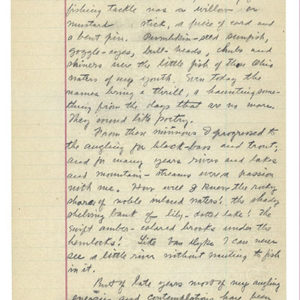 fishing tackle was a willow or
mustard stick, a piece of cord and
a bent pin. Pumpkin-seed sunfish,
goggle-eyes, bull-heads, chubs and
shiners were the little fish of the Ohio
waters of my youth. Even today the
names bring a thrill, a haunting some-
thing from the days that are no more.
They sound like poetry.
From these minnows I progressed
to the angling for black-bass and trout,
and for many years rivers and lakes
and mountain-streams were a passion
with me. How well I know the rocky
shores of noble inland waters! the shady
shelving bank of lily-dotted lakes! The
swift amber-colored brooks under the
hemlocks! Like Van Dyke I can never
see a little river without wishing to fish
in it.
But of late years most of my angling
energies and contemplation has been